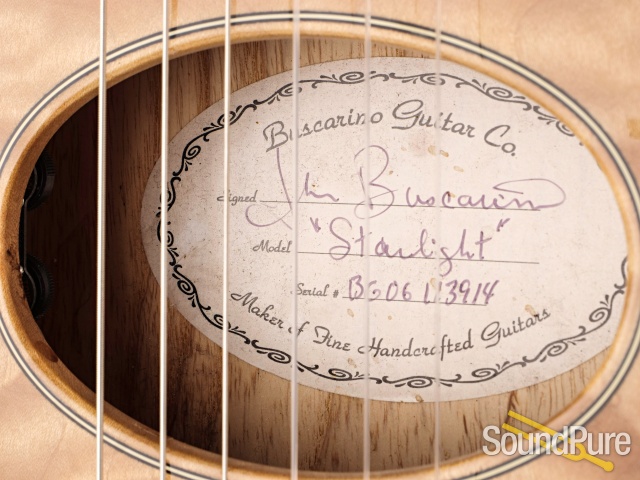 Buscarino Guitar Co.
Signed John Buscarino
Model "Starlight"
Serial #
Maker of Fine Handcrafted Guitars
SoundPure